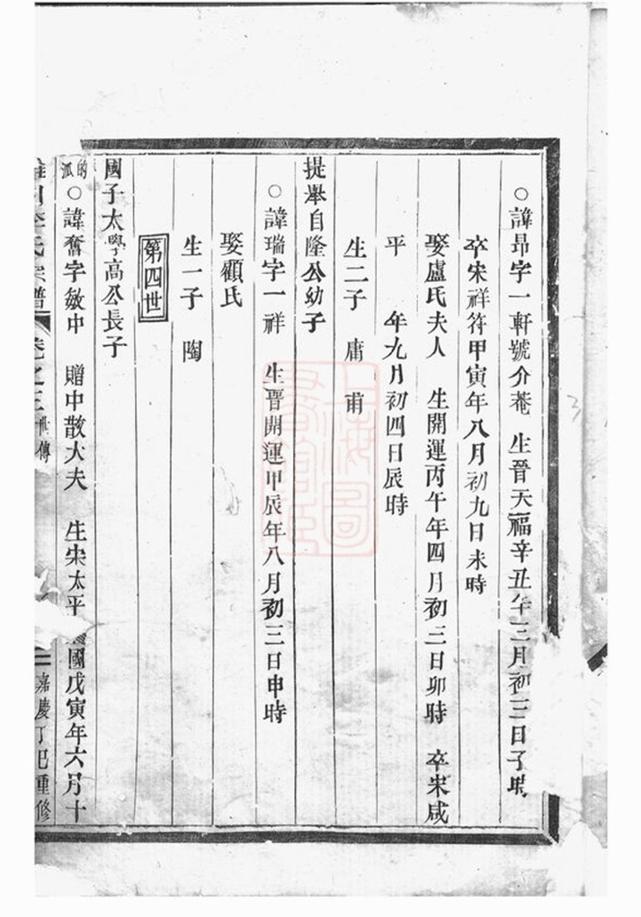 ○諱昴字一軒號介菴 生晉天福辛丑年三月初三日子時
卒宋祥符甲寅年八月初九日未時
娶盧氏夫人 生開運丙午年四月初三日卯時 卒宋咸
平 年九月初四日辰時
生二子 庸 甫
提舉自隆公幼子
○諱瑞字一祥 生晉開運甲辰年八月初三日申時
娶顧氏
生一子 陶
第四世
國子太學高公長子
的派○諱奮字敏中 贈中散大夫 生宋太平興國戊寅年六月十
李氏宗譜 卷之三 世傳 嘉慶丁巳重修
上海圖